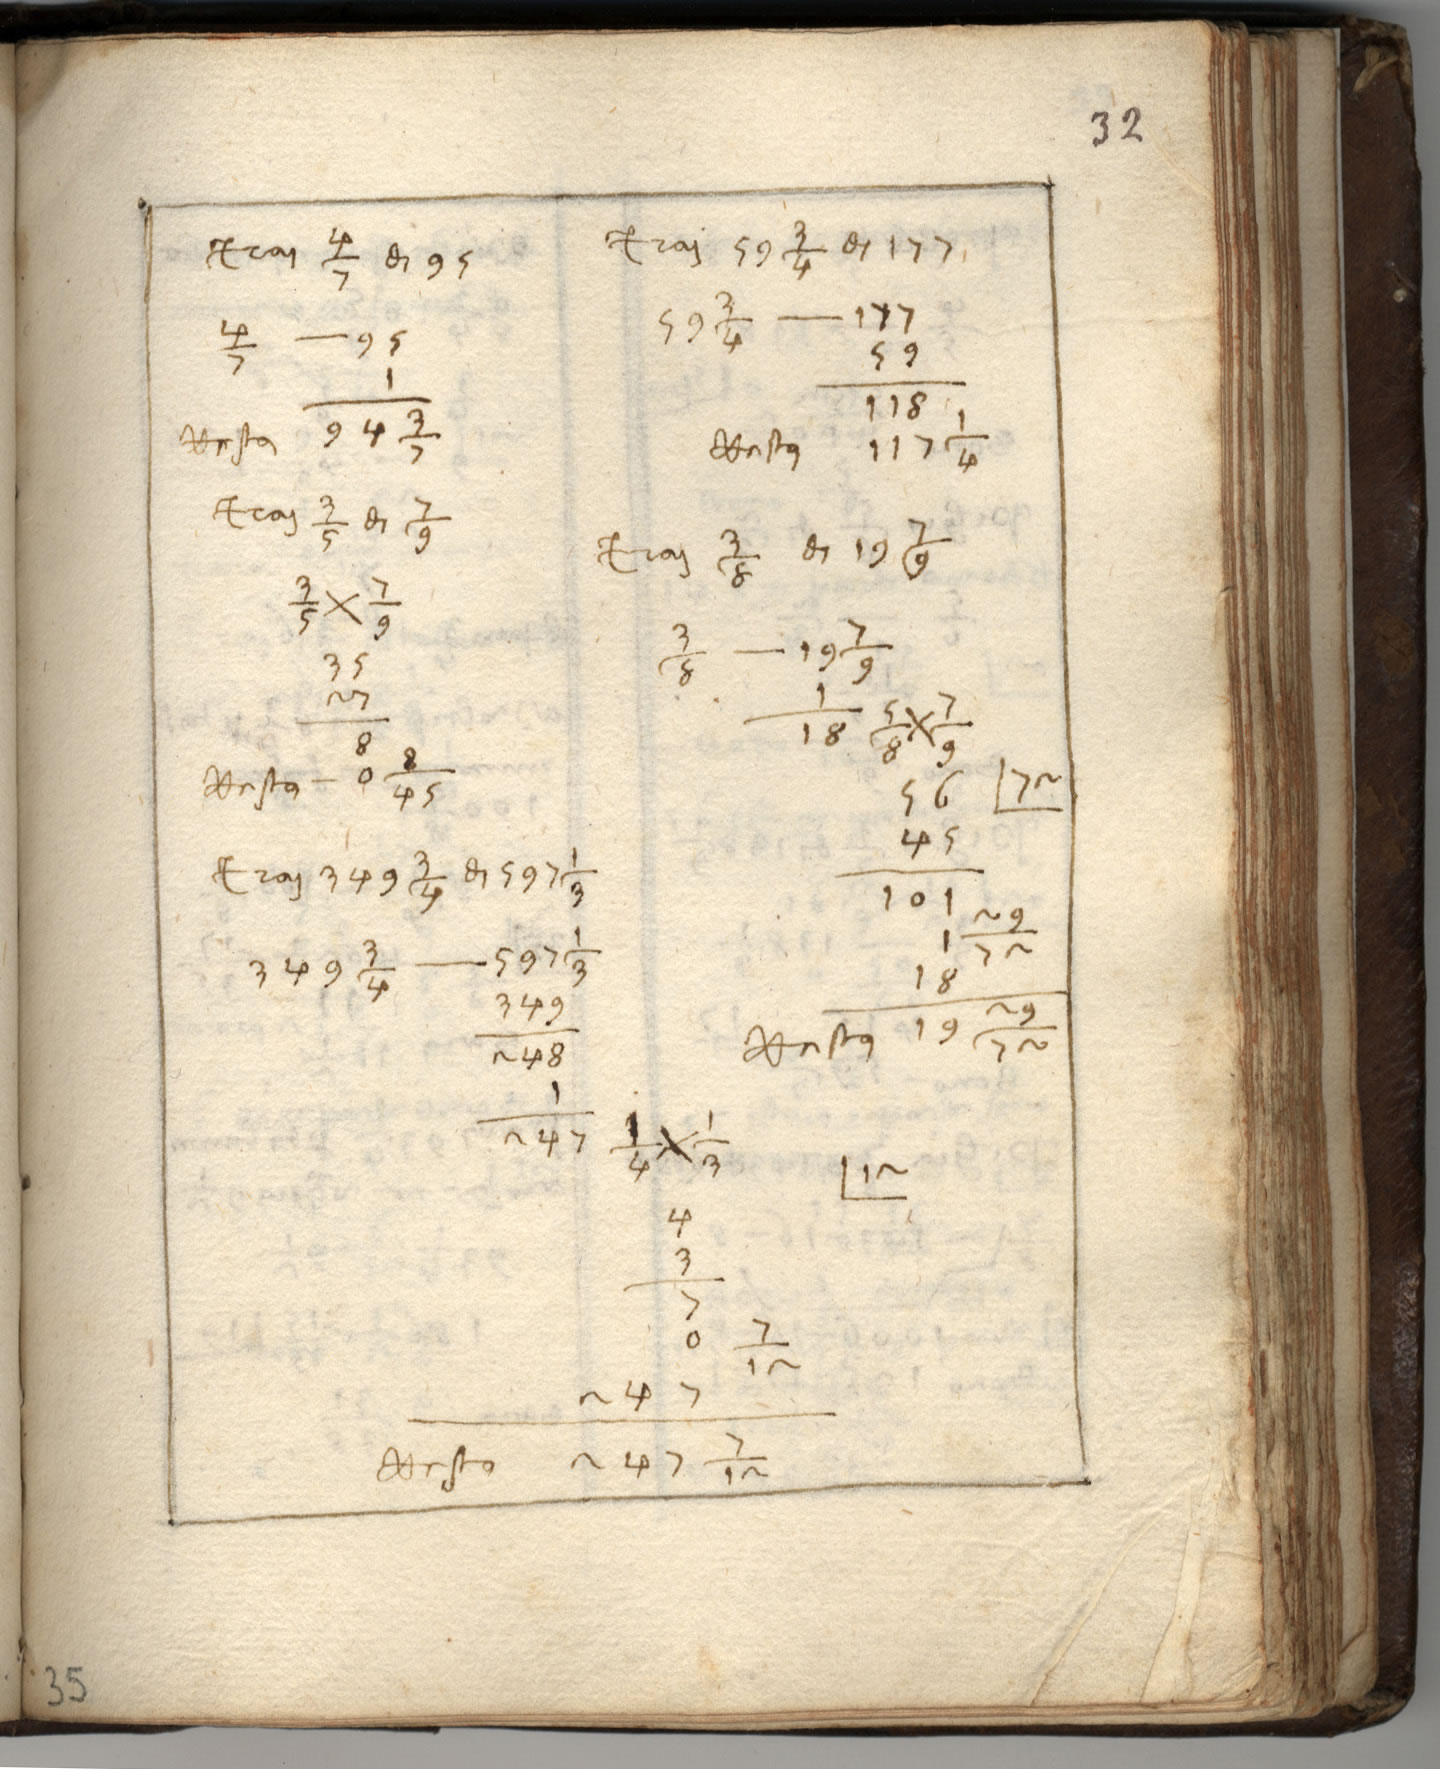 32
Trai 4/7 di 95
4/7 — 95
1
Resta 94 3/7
Trai 3/5 di 7/9
3/5 X 7/9
35
27
8
Resta - 0 8/45
Trai 349 3/4 di 597 1/3
349 3/4 — 597 1/3
349
248
1
247 1/4 X 1/3
12
4
3
7
0 7/12
247
Resto 247 7/12
Trai 59 3/4 di 177
59 3/4 — 177
59
118
Resta 117 1/4
Trai 3/8 di 19 7/9
3/8 — 19 7/9
1
18 5/8 X 7/9
56 72
45
101
1 29/72
18
Resta 19 29/72
35